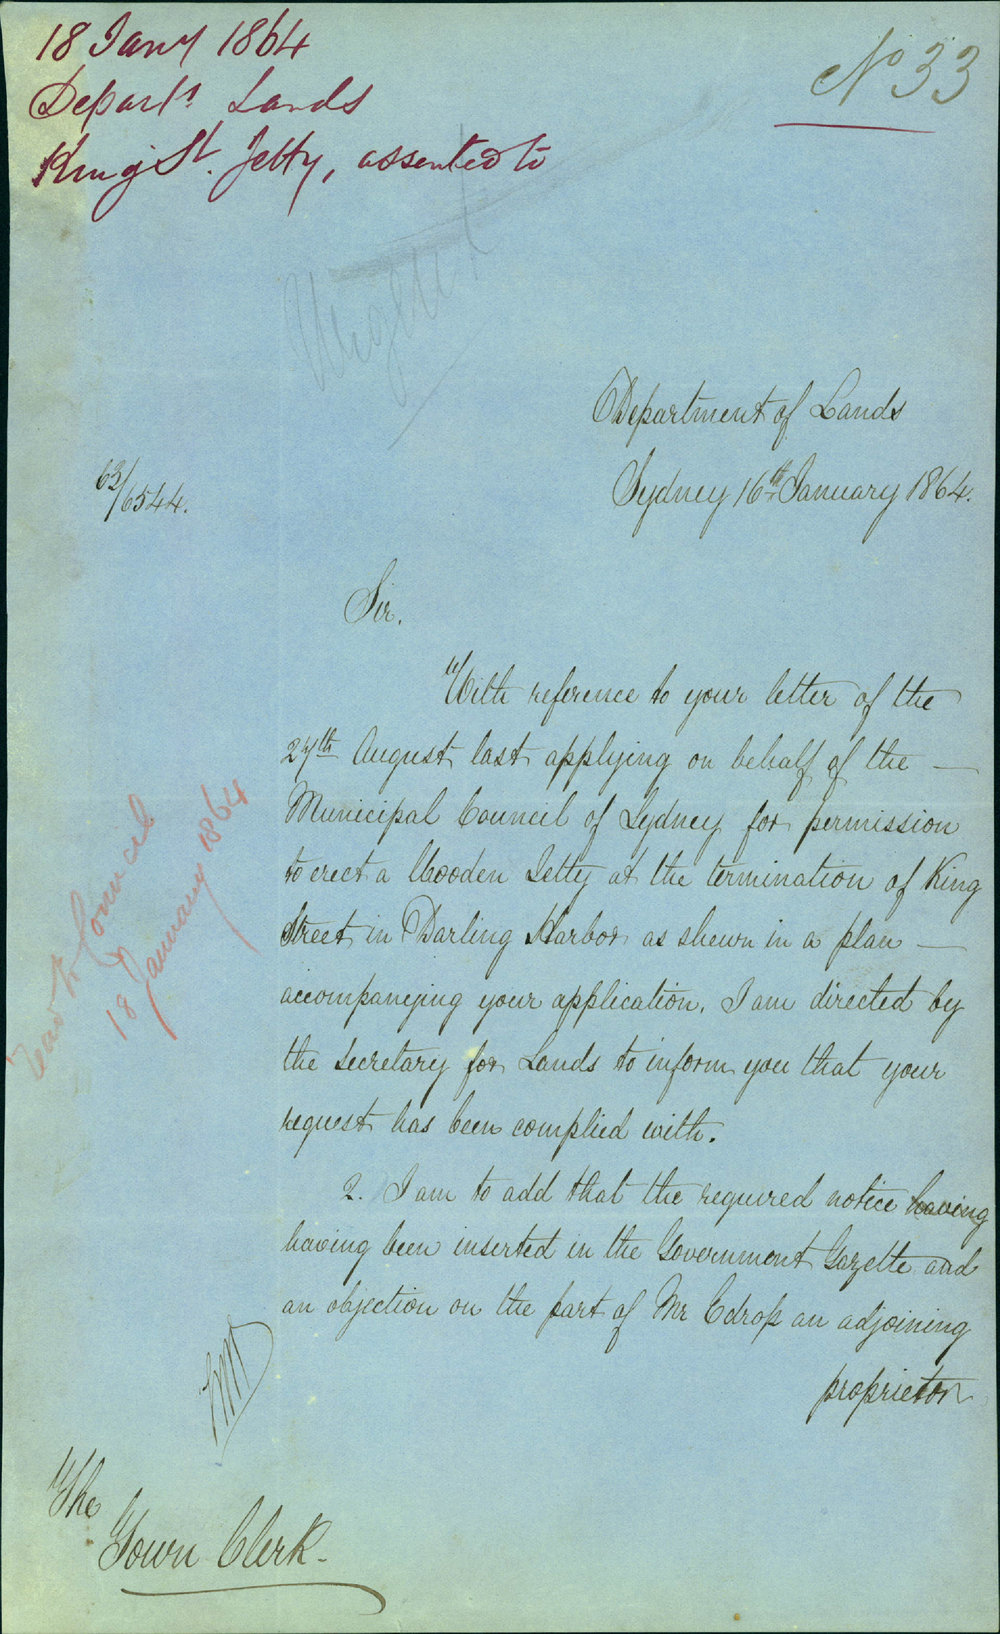 18 Jany 1864
Departt. Lands
King St. Jetty, assented to
No 33
Urgent
Department of Lands
Sydney 16th January 1864.
63/6544.
Sir.
With reference to your letter of the
27th August last applying on behalf of the —
Municipal Council of Sydney for permission
to erect a Wooden Jetty at the termination of King
Street in Darling Harbor as shewn in a plan —
accompanying your application, I am directed by
the Secretary for Lands to inform you that your
request has been complied with.
2. I am to add that the required notice having
having been inserted in the Government Gazette and
an objection on the part of Mr Edrop an adjoining
proprietor
Read to Council
18 January 1864
The
Town Clerk